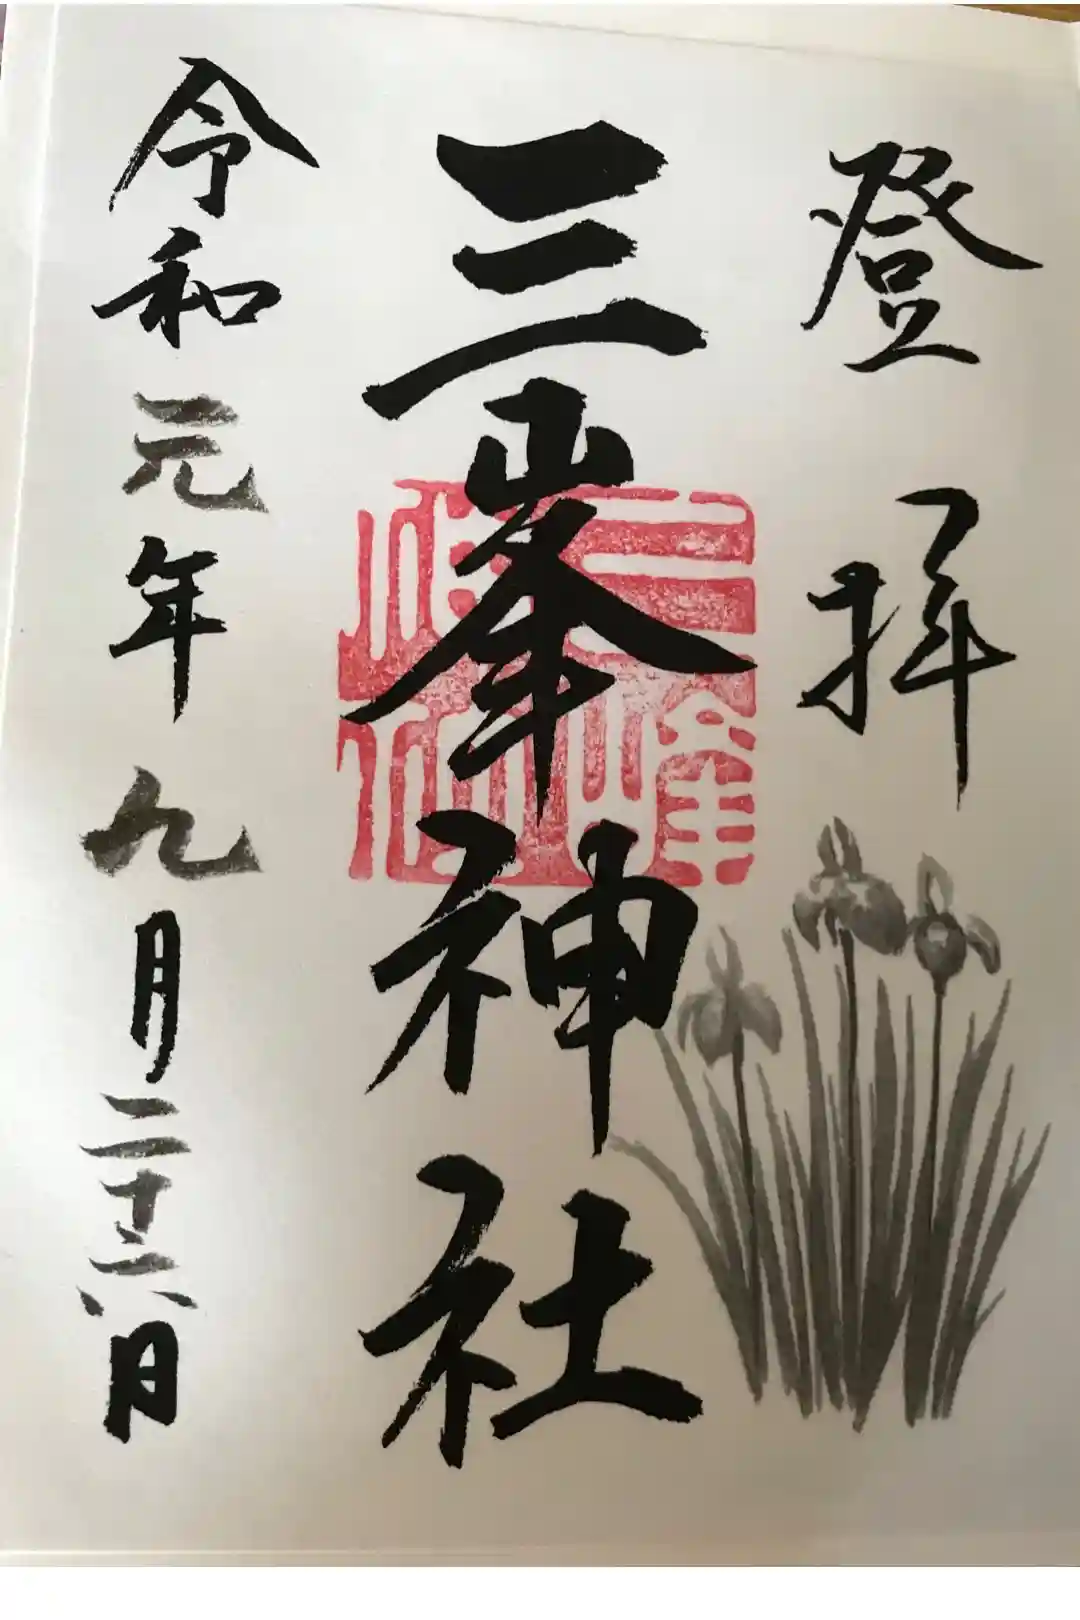 登拝
三峯神社
令和元年九月二十六日